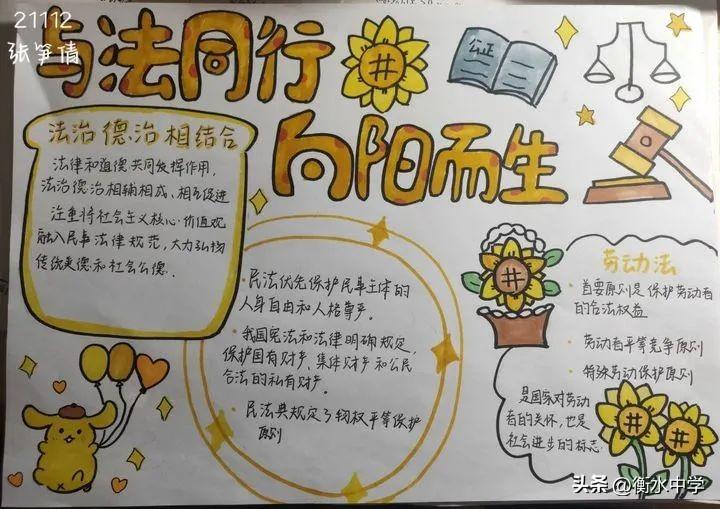 21112
张笋倩
与法同行
向阳而生
证
法治德治相结合
法律和道德共同发挥作用,
法治德治相辅相成、相互促进
注重将社会主义核心价值观
融入民事法律规范,大力弘扬
传统美德和社会公德.
· 民法优先保护民事主体的
人身自由和人格尊严。
· 我国宪法和法律明确规定,
保护国有财产、集体财产和公民
合法的私有财产。
· 民法典规定了物权平等保护
原则
劳动法
· 首要原则是保护劳动者
的合法权益
· 劳动者平等竞争原则
· 特殊劳动保护原则
是国家对劳动
者的关怀,也是
社会进步的标志.
头条 @衡水中学